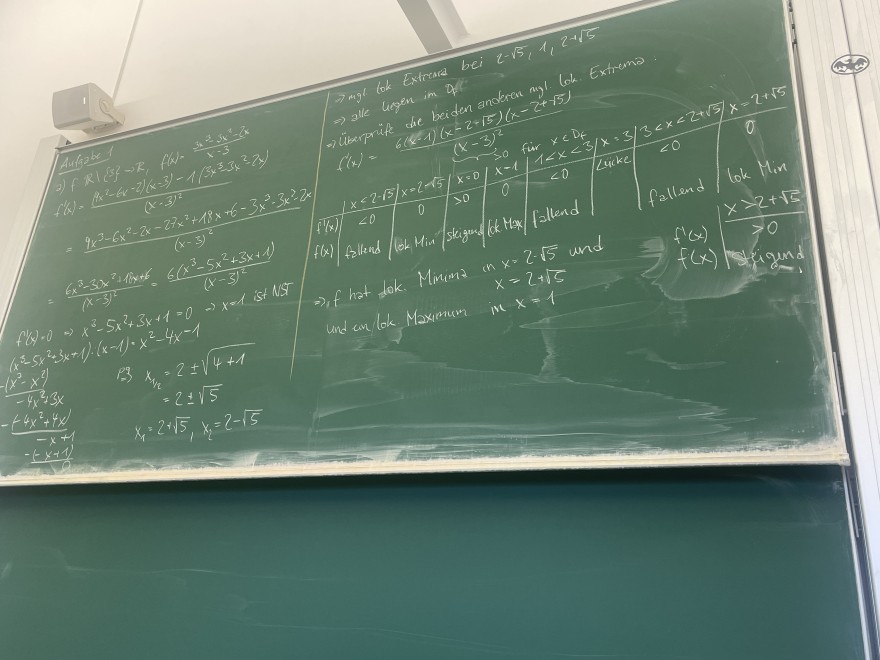 Aufgabe 1
a) f: ℝ \ {3} → ℝ, f(x) = (3x³-3x²-2x)/(x-3)
f'(x) = ((9x²-6x-2)(x-3) - 1(3x³-3x²-2x))/(x-3)²
= (9x³-6x²-2x-27x²+18x+6-3x³-3x²-2x)/(x-3)²
= (6x³-30x²+18x+6)/(x-3)² = 6(x³-5x²+3x+1)/(x-3)²
f'(x)=0 ⇒ x³-5x²+3x+1=0 ⇒ x=1 ist NST
(x³-5x²+3x+1):(x-1)=x²-4x-1
-(x³-x²)
-4x²+3x
-(-4x²+4x)
-x+1
-(-x+1)
0
x₁/₂ = 2±√(4+1)
= 2±√5
x₁=2+√5, x₂=2-√5
⇒ mgl. lok. Extrema bei 2-√5, 1, 2+√5
⇒ alle liegen im D_f
⇒ Überprüfe die beiden anderen mgl. lok. Extrema.
f'(x) = 6(x-1)(x-2-√5)(x-2+√5)/(x-3)²
>0 für x∈D_f
| x<2-√5 | x=2-√5 | x=0 | x=1 | 1<x<3 | x=3 | 3<x<2+√5 | x=2+√5
f'(x) | <0 | 0 | >0 | 0 | <0 | Lücke | <0 | 0
f(x) | fallend | lok Min | steigend | lok Max | fallend | | fallend | lok Min
x>2+√5
f'(x) | >0
f(x) | steigend
⇒ f hat lok. Minima in x=2-√5 und
x=2+√5
und ein lok Maximum in x=1